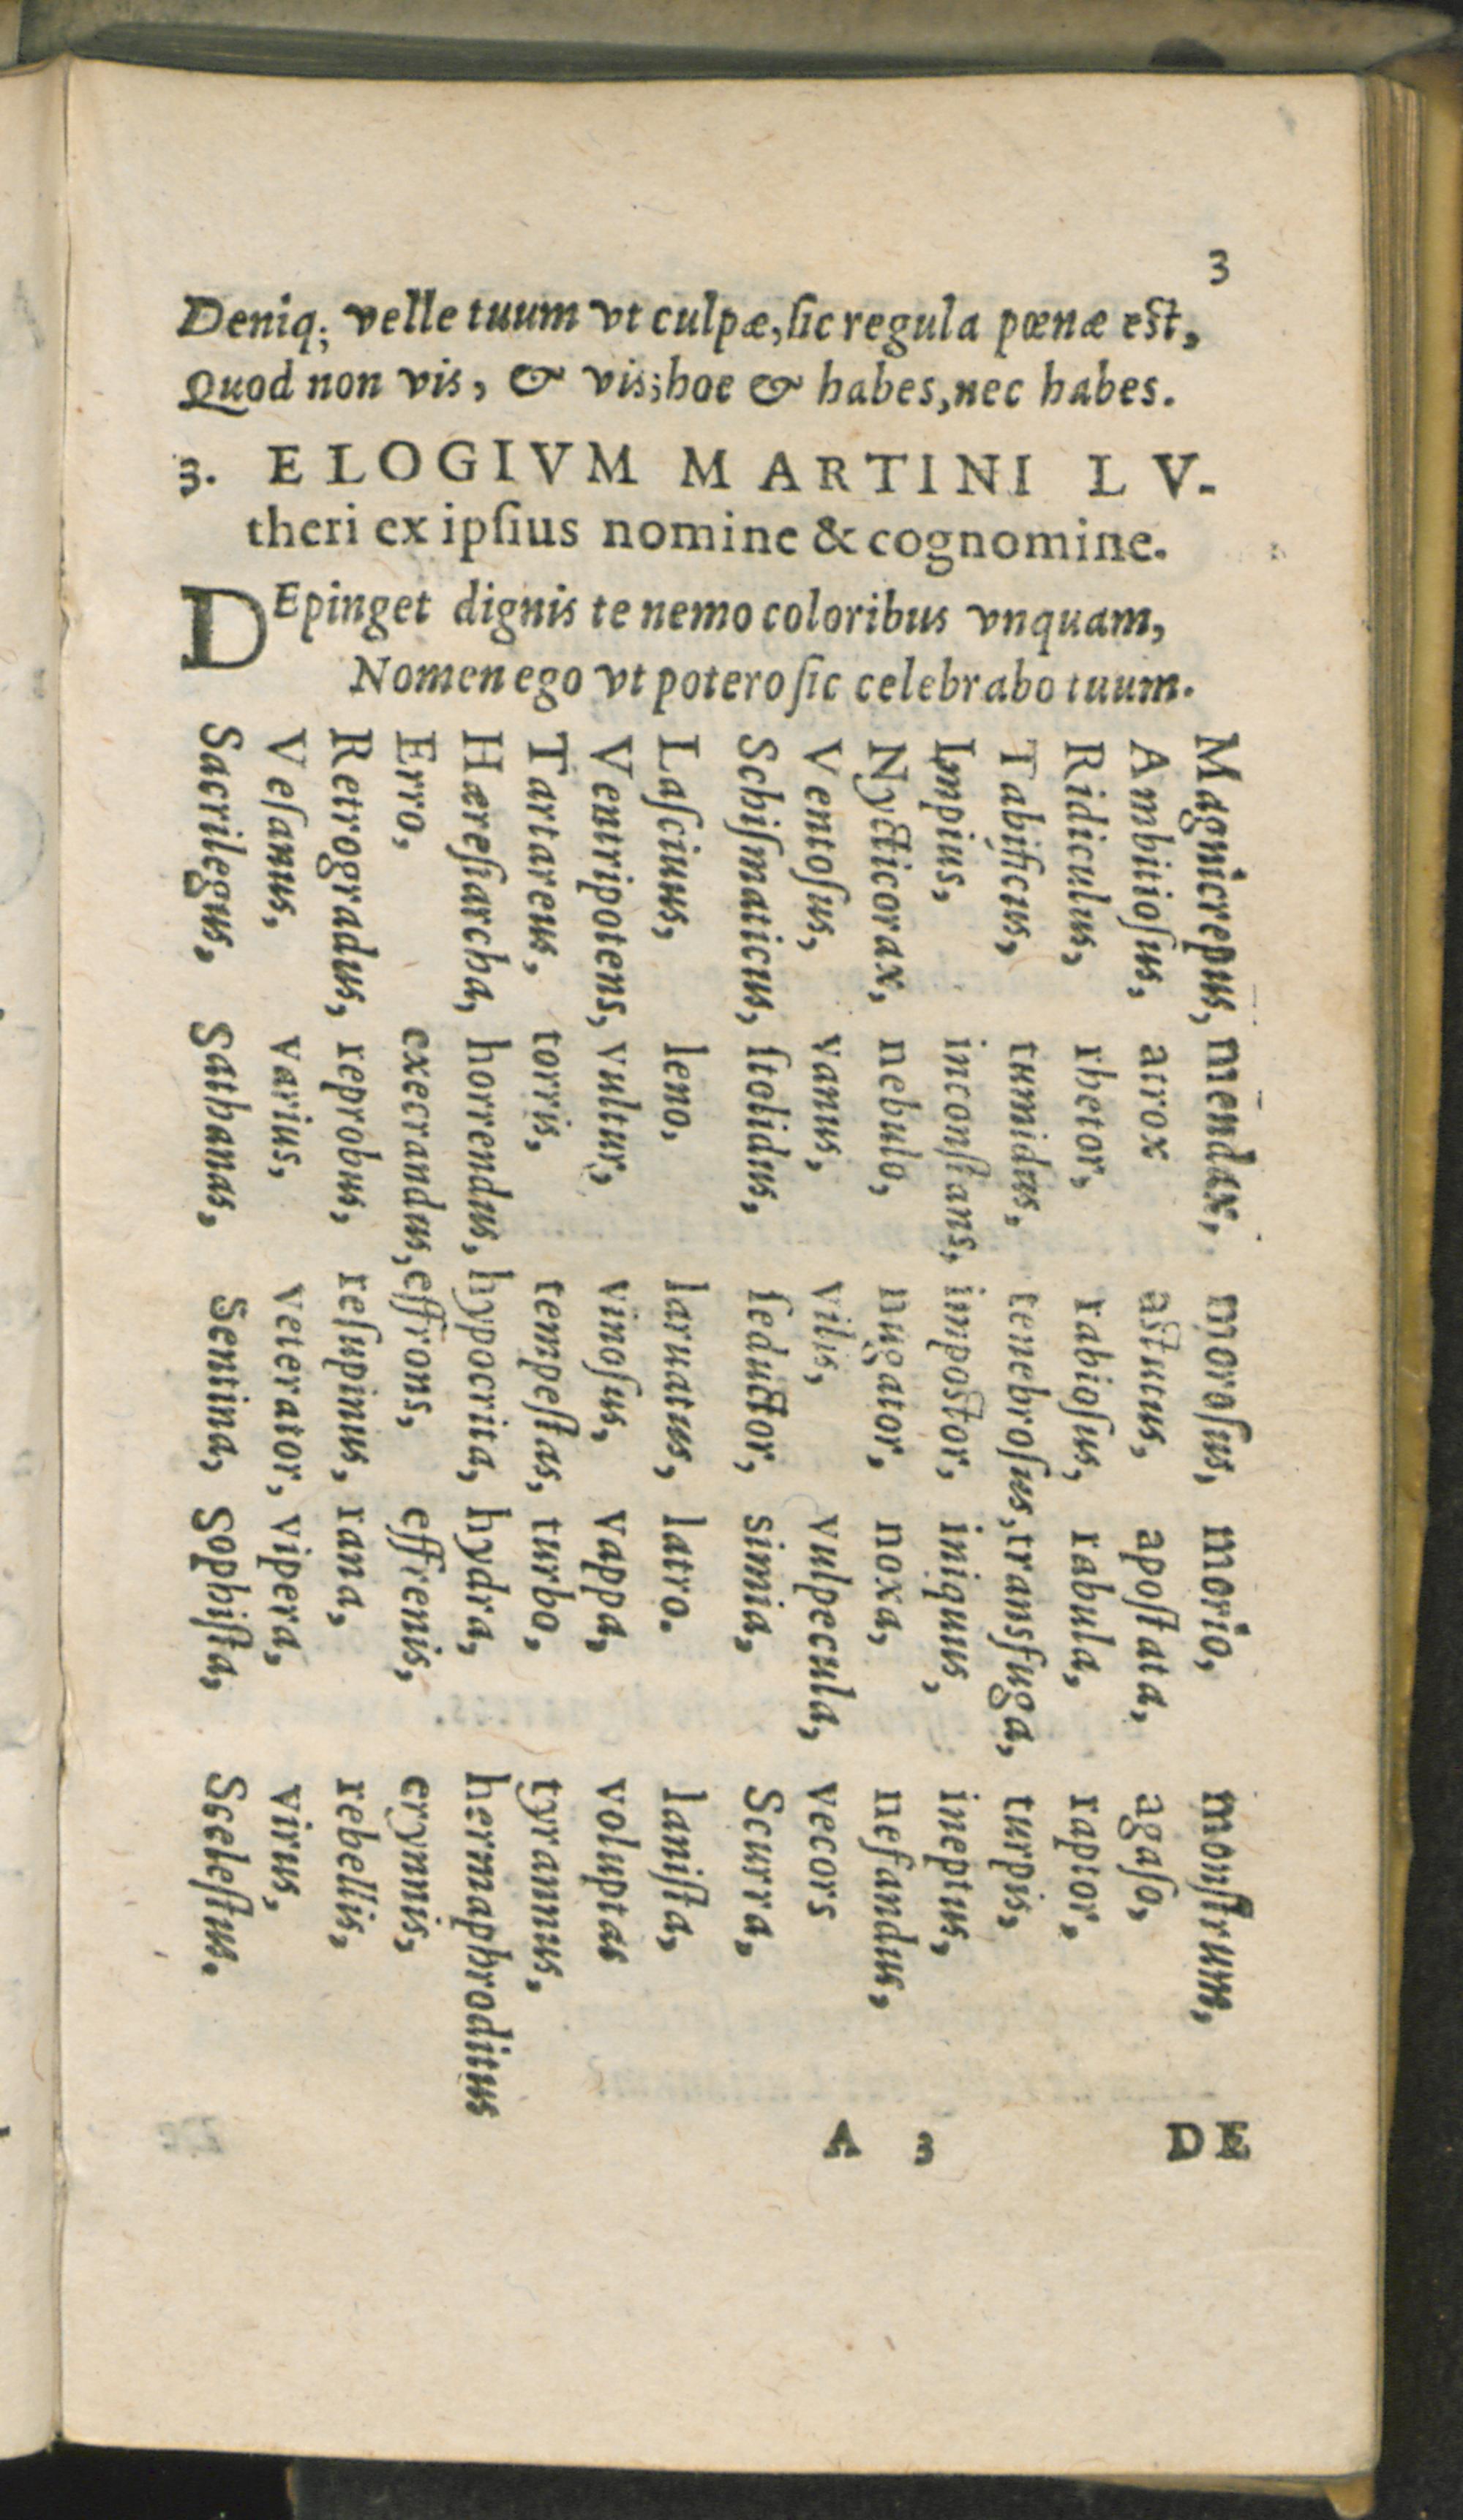 3
Deniq; velle tuum vt culpæ, ſic regula pœnæ eſt,
Quod non vis, & vis; hoc & habes, nec habes.
3. ELOGIVM MARTINI LV-
theri ex ipſius nomine & cognomine.
DEpinget dignis te nemo coloribus vnquam,
Nomen ego vt potero ſic celebrabo tuum.
Magnicrepus, mendax, moroſus, morio, monſtrum,
Ambitioſus, atrox aſtutus, apoſtata, agaſo,
Ridiculus, rhetor, rabioſus, rabula, raptor,
Tabificus, tumidus, tenebroſus, transfuga, turpis,
Impius, inconſtans, impoſtor, iniquus, ineptus,
Nycticorax, nebulo, nugator, noxa, nefandus,
Ventoſus, vanus, vilis, vulpecula, vecors
Schiſmaticus, ſtolidus, ſeductor, simia, Scurra,
Laſciuus, leno, laruatus, latro. laniſta,
Ventripotens, vultur, vinoſus, vappa, voluptas
Tartareus, torris, tempeſtas, turbo, tyrannus,
Hæreſiarcha, horrendus, hypocrita, hydra, hermaphroditus
Erro, execrandus, effrons, effrenis, erynnis,
Retrogradus, reprobus, reſupinus, rana, rebellis,
Veſanus, varius, veterator, vipera, virus,
Sacrilegus, Sathanas, Sentina, Sophiſta, Sceleſtus.
A 3 DE